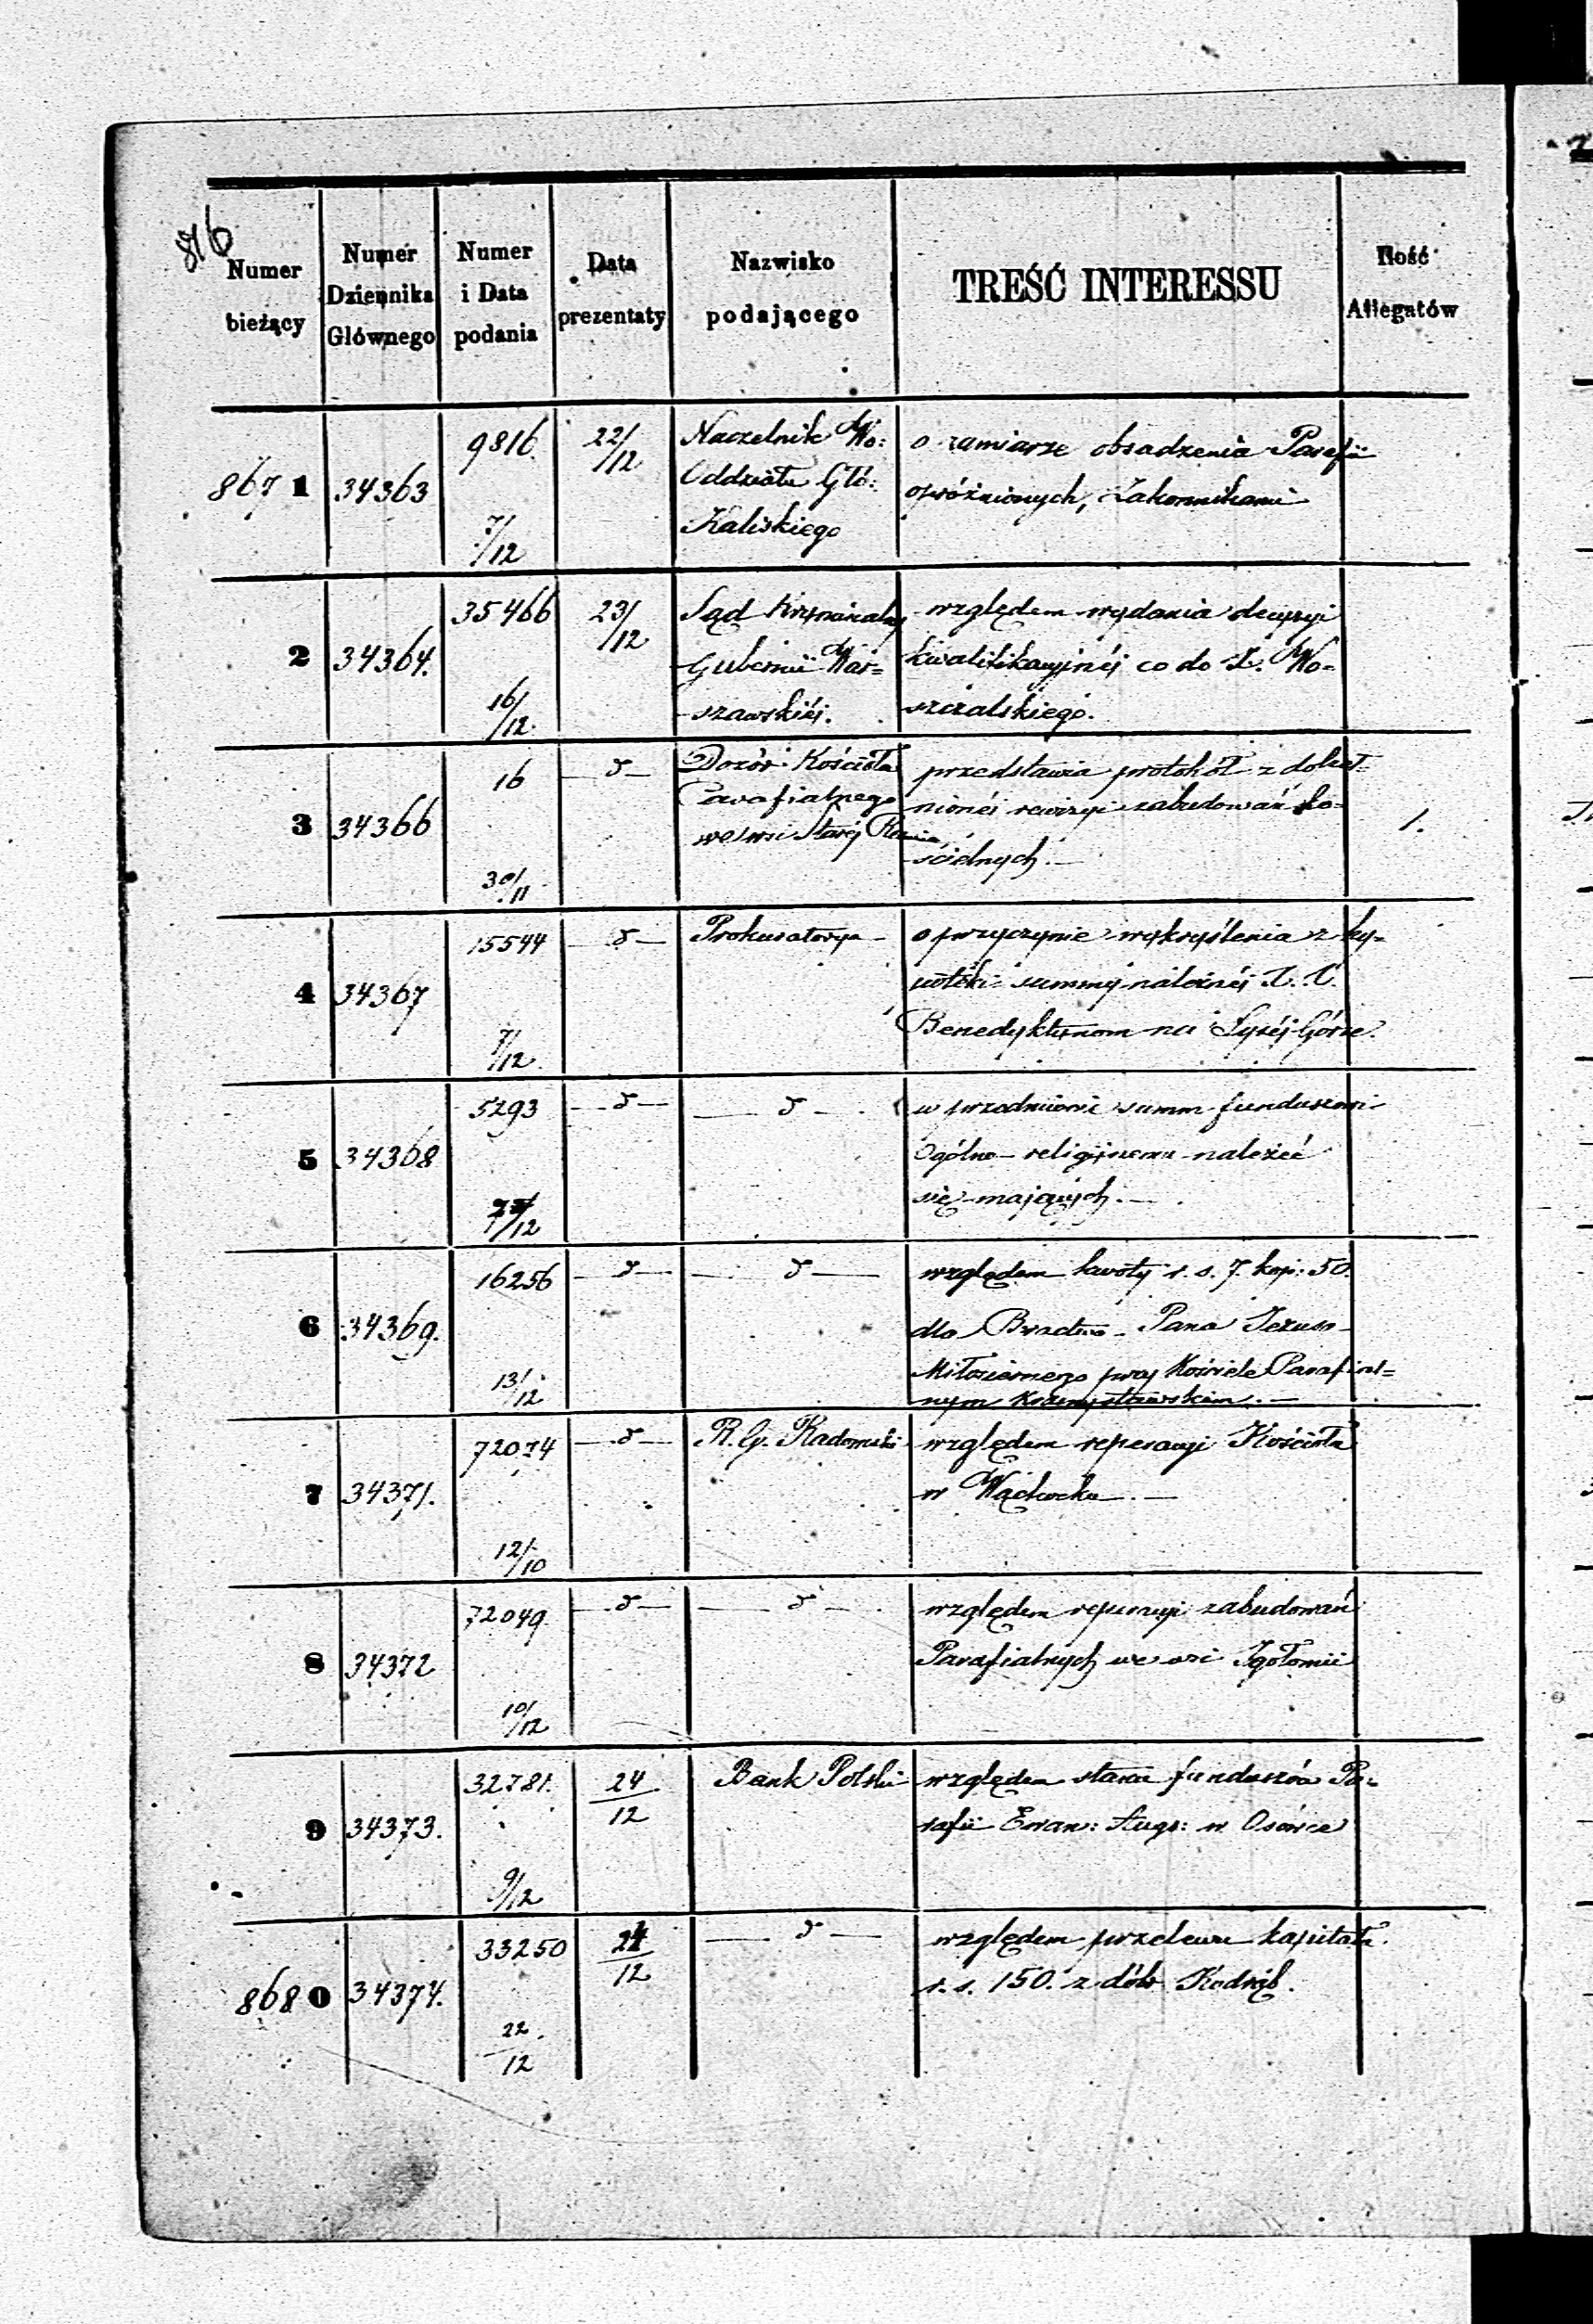 876
Numer bieżący
Numer Dziennika Głównego
Numer i Data podania
Data prezentaty
Nazwisko podającego
TREŚĆ INTERESSU
Ilość Allegatów
867 1
34363
9816.
7/12
22/12
Naczelnik Wo:
Oddziału Głó:
Kaliskiego
o zamiarze obsadzenia Parafii
opróżnionych, Zakonnikami
2
34364.
35466
16/12.
23/12
Sąd Kryminalny
Gubernii War=
szawskiéj.
względem wydania decyzyi
kwalifikacyjnéj co do X. Wo=
szczalskiego.
3
34366
16
30/11
— d —
Dozór Kościoła
Parafialnego
we wsi Staréj
przedstawia protokół z
nionéj rewizyi zabudowań ko=
ścielnych. —
1.
4
34367
15544
7/12.
— d —
Prokuratorya —
o przyczynie wykryślenia z hy=
poteki summy należnéj X. X.
Benedyktynom na Łyséj Górze.
5
34368
5293
/12
— d —
— d —
w przedmiocie summ funduszowi
Ogólno-religijnemu należeć
się mających. —
6
34369.
16256
13/12
— d —
— d —
względem kwoty r. s. 7. kop: 50.
dla Bractwa Pana Jezusa
Miłosiernego przy Kościele Parafial=
nym —
7
34371.
72074
12/10
— d —
R. G. Radomski
względem reperacyi Kościoła
w Wąchocku. —
8
34372
72049.
10/12
— d —
— d —
względem reperacyi zabudowań
Parafialnych we wsi Igołomii
9
34373.
32781.
9/12
24/12
Bank Polski
względem stanu funduszów Pa=
rafii Ewan: Augs: w Osówce
868 0
34374.
33250
22/12
24/12
— d —
względem przelewu kapitału
r. s. 150. z dóbr Kodrąb.